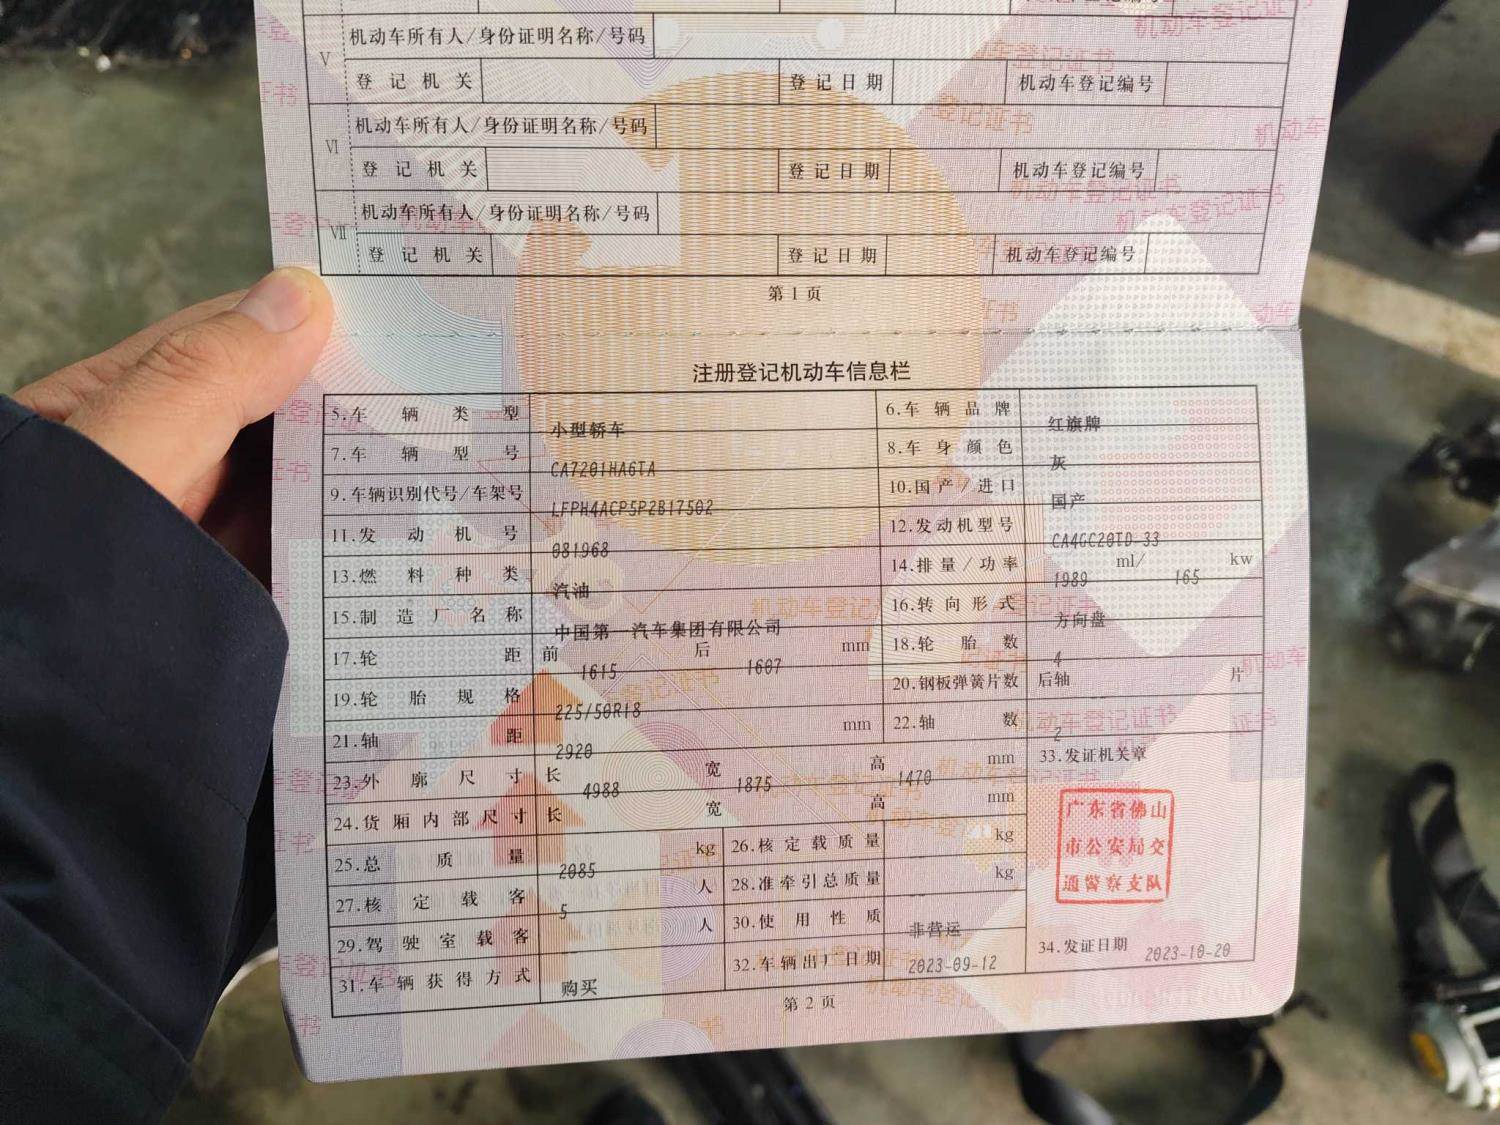 V 机动车所有人/身份证明名称/号码
登记机关 登记日期 机动车登记编号
VI 机动车所有人/身份证明名称/号码
登记机关 登记日期 机动车登记编号
VII 机动车所有人/身份证明名称/号码
登记机关 登记日期 机动车登记编号
第1页
注册登记机动车信息栏
5.车辆类型 小型轿车 6.车辆品牌 红旗牌
7.车辆型号 CA7201HA6TA 8.车身颜色 灰
9.车辆识别代号/车架号 LFPH4ACP5P2B17502 10.国产/进口 国产
11.发动机号 081968 12.发动机型号 CA4GC20TD-33
13.燃料种类 汽油 14.排量/功率 1989 ml/ 165 kw
15.制造厂名称 中国第一汽车集团有限公司 16.转向形式 方向盘
17.轮距 前 1615 后 1607 mm 18.轮胎数 4
19.轮胎规格 225/50R18 20.钢板弹簧片数 后轴 -- 片
21.轴距 2920 mm 22.轴数 2
23.外廓尺寸 长 4988 宽 1875 高 1470 mm 33.发证机关章
24.货厢内部尺寸 长 宽 高 mm
广东省佛山
市公安局交
通警察支队
25.总质量 2085 kg 26.核定载质量 kg
27.核定载客 5 人 28.准牵引总质量 kg
29.驾驶室载客 人 30.使用性质 非营运
31.车辆获得方式 购买 32.车辆出厂日期 2023-09-12 34.发证日期 2023-10-20
第2页